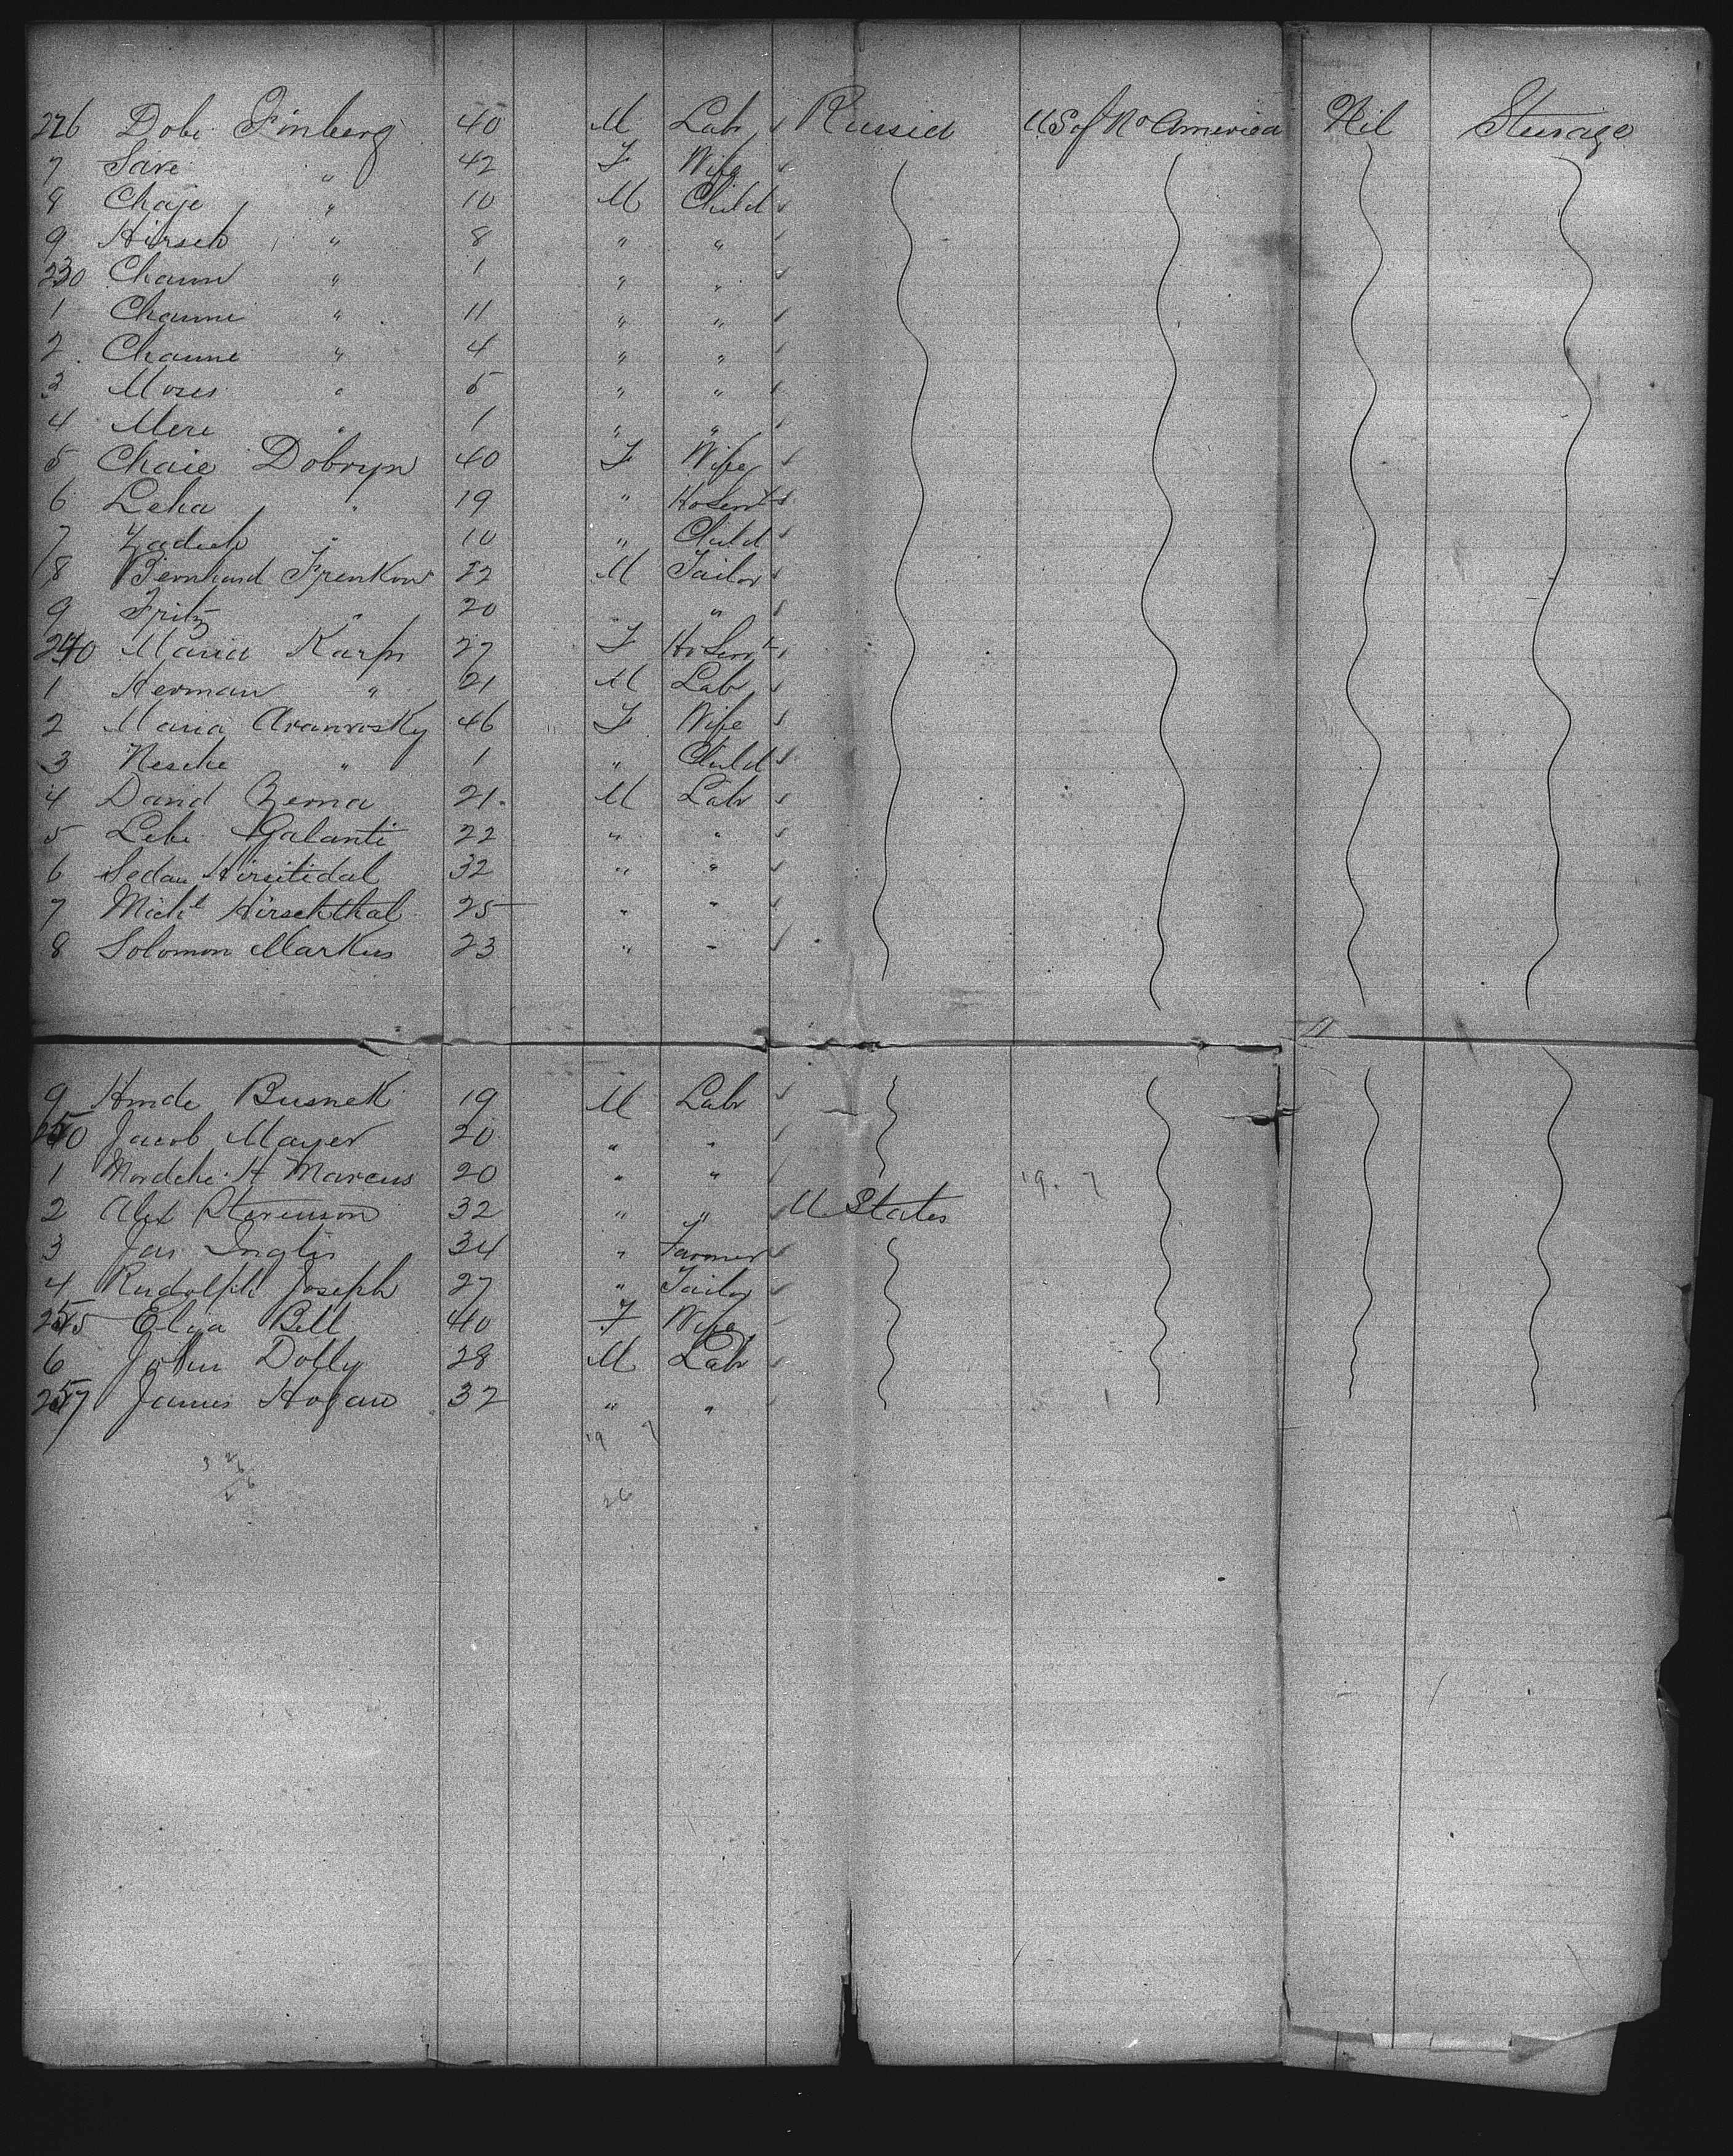 226 Dobe Finberg 40 M Labr Russia US of No America Nil Steerage
7 Sare " 42 F Wife
8 Chaje " 10 M Child
9 Hirsch " 8 " "
230 Chaim " 1 " "
1 Chaume " 11 " "
2 Chaume " 4 " "
3 Moses " 5 " "
4 Mere " 1 " "
5 Chaie Dobryn 40 F Wife
6 Leha " 19 " HoServt
7 Zadich " 10 " Child
8 Bernhard Frenkow 22 M Tailor
9 Fritz " 20 "
240 Maria Karp 27 F HoServt
1 Herman " 21 M Labr
2 Maria Aranvosky 46 F Wife
3 Nesche " 1 " Child
4 David Berna 21 M Labr
5 Lebe Galanti 22 " "
6 Sedau Hirsitidal 32 " "
7 Michl Hirschthal 25 " "
8 Solomon Markus 23 " "
9 Hinde Busnek 19 M Labr
250 Jacob Mayer 20 " "
1 Mordche H Marcus 20 " "
2 Alex Stevenson 32 " " U States
3 Jas Inglis 34 " Farmer
4 Rudolph Joseph 27 " Tailor
255 Eliza Bell 40 F Wife
6 John Dolly 28 M Labr
257 James Hogan 32 " "
19 7
26